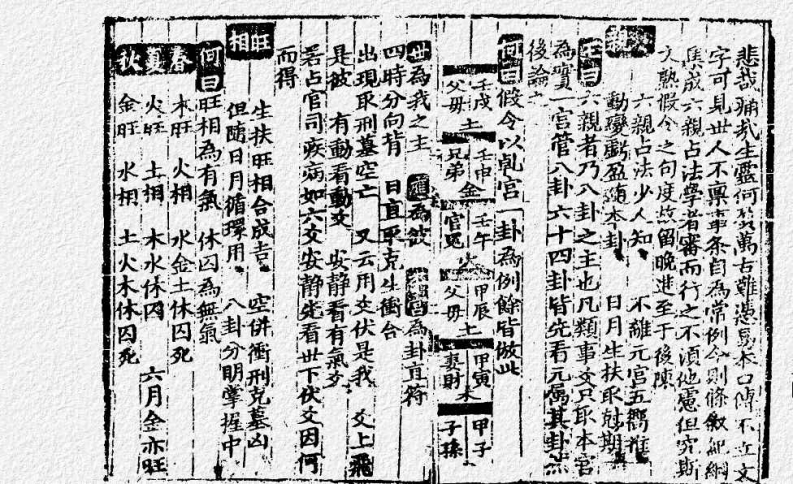 悲哉痛哉生靈何 萬古難憑 本口傳不立文
字可見世人不稟事条自為常例今則條敘紀綱
 成六親占法學者審而行之不須他慮但究斯
文熟假令之句度故留晚進至于後陳
六親
六親占法少人知 不離元宮五鄉推
動變虧盈隨本卦 日月生扶取 期
主曰六親者乃八卦之主也凡類事爻只取本宮
為實一宮管八卦六十四卦皆先看元屬其卦 
後論之
何曰假令以乹宮一卦為例餘皆倣此
父母 壬戌 土
兄弟 壬申 金
官鬼 壬午 火
父母 甲辰 土
妻財 甲寅 木
子孫 甲子
世為我之主 應為彼 為卦直符
四時分向背 日直取克生衝合
出現取刑墓空亡 又云用爻伏是我 爻上飛
是彼 有動看動爻 安靜看有氣爻
若占官司疾病如六爻安靜先看世下伏爻因何
而得
旺相
生扶旺相合成吉 空併衝刑克墓凶
但隨日月循環用 八卦分明掌握中
何曰旺相為有氣 休囚為無氣
春 木旺 火相 水金土休囚死
夏 火旺 土相 木水休囚 六月金亦旺
秋 金旺 水相 土火木休囚死